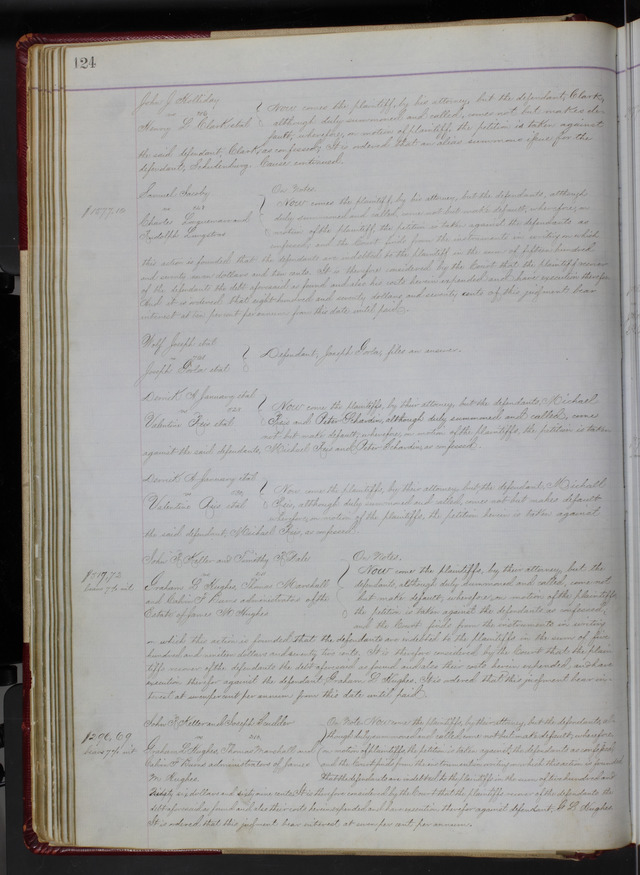 124
John J. Holliday
vs 
Henry D. Clark et al
Now comes the plaintiff, by his attorney, but the defendant, Clark,
although duly summoned and called, comes not but makes de-
fault; wherefore, on motion of plaintiff, the petition is taken against
the said defendant, Clark, as confessed; It is ordered that an alias summons issue for the
defendant, Schulenburg. Cause continued.
$1577.10
Samuel
vs
Charles and
Rudolph
On Notes.
Now comes the plaintiff, by his attorney, but the defendants, although
duly summoned and called, come not but make default; wherefore, on
motion of the plaintiff, the petition is taken against the defendants as
confessed, and the Court finds from the instruments in writing on which
this action is founded that the defendants are indebted to the plaintiff in the sum of fifteen hundred
and seventy seven dollars and ten cents. It is therefore considered by the Court that the plaintiff recover
of the defendants the debt aforesaid as found and also his costs herein expended and have execution therefor.
And it is ordered that eight hundred and seventy dollars and seventy cents of this judgment bear
interest at ten per cent per annum from this date until paid.
Wolf Joseph et al
vs
Joseph et al
Defendant, Joseph files an answer.
Derrick A. January et al
vs
Valentine et al
Now come the plaintiffs, by their attorney, but the defendants, Michael
and Peter although duly summoned and called, comes
not but make default; wherefore, on motion of the plaintiffs, the petition is taken
against the said defendants, Michael and Peter as confessed.
Derrick A. January et al
vs
Valentine et al
Now come the plaintiffs, by their attorney, but the defendant, Michael
although duly summoned and called, comes not but makes default
wherefore, on motion of the plaintiffs, the petition herein is taken against
the said defendant, Michael as confessed.
$519.72
bears 7% int
John R. and Timothy R.
vs
Graham D. Hughes, Thomas Marshall
and Calvin F. Burns administrators of the
Estate of James M. Hughes
On Notes.
Now come the plaintiffs, by their attorney, but the
defendants, although duly summoned and called, come not
but make default; wherefore, on motion of the plaintiffs,
the petition is taken against the defendants as confessed,
and the Court finds from the instruments in writing
on which this action is founded that the defendants are indebted to the plaintiffs in the sum of five
hundred and nineteen dollars and seventy two cents. It is therefore considered by the Court that the plain-
tiffs recover of the defendants the debt aforesaid as found and also their costs herein expended, and have
execution therefor against the defendant Graham D. Hughes. It is ordered that this judgment bear in-
terest at seven per cent per annum from this date until paid.
$296.69
bears 7% int
John R. and Joseph
vs
Graham D. Hughes, Thomas Marshall and
Calvin F. Burns administrators of James
M. Hughes
On Notes. Now come the plaintiffs, by their attorney, but the defendants, al-
though duly summoned and called, come not but make default; wherefore
on motion of plaintiffs the petition is taken against the defendants as confessed
and the Court finds from the instruments in writing on which this action is founded
that the defendants are indebted to the plaintiffs in the sum of two hundred and
ninety six dollars and sixty nine cents. It is therefore considered by the Court that the plaintiffs recover of the defendants the
debt aforesaid as found and also their costs herein expended and have execution therefor against defendant, G. D. Hughes.
It is ordered that this judgment bear interest at seven per cent per annum.